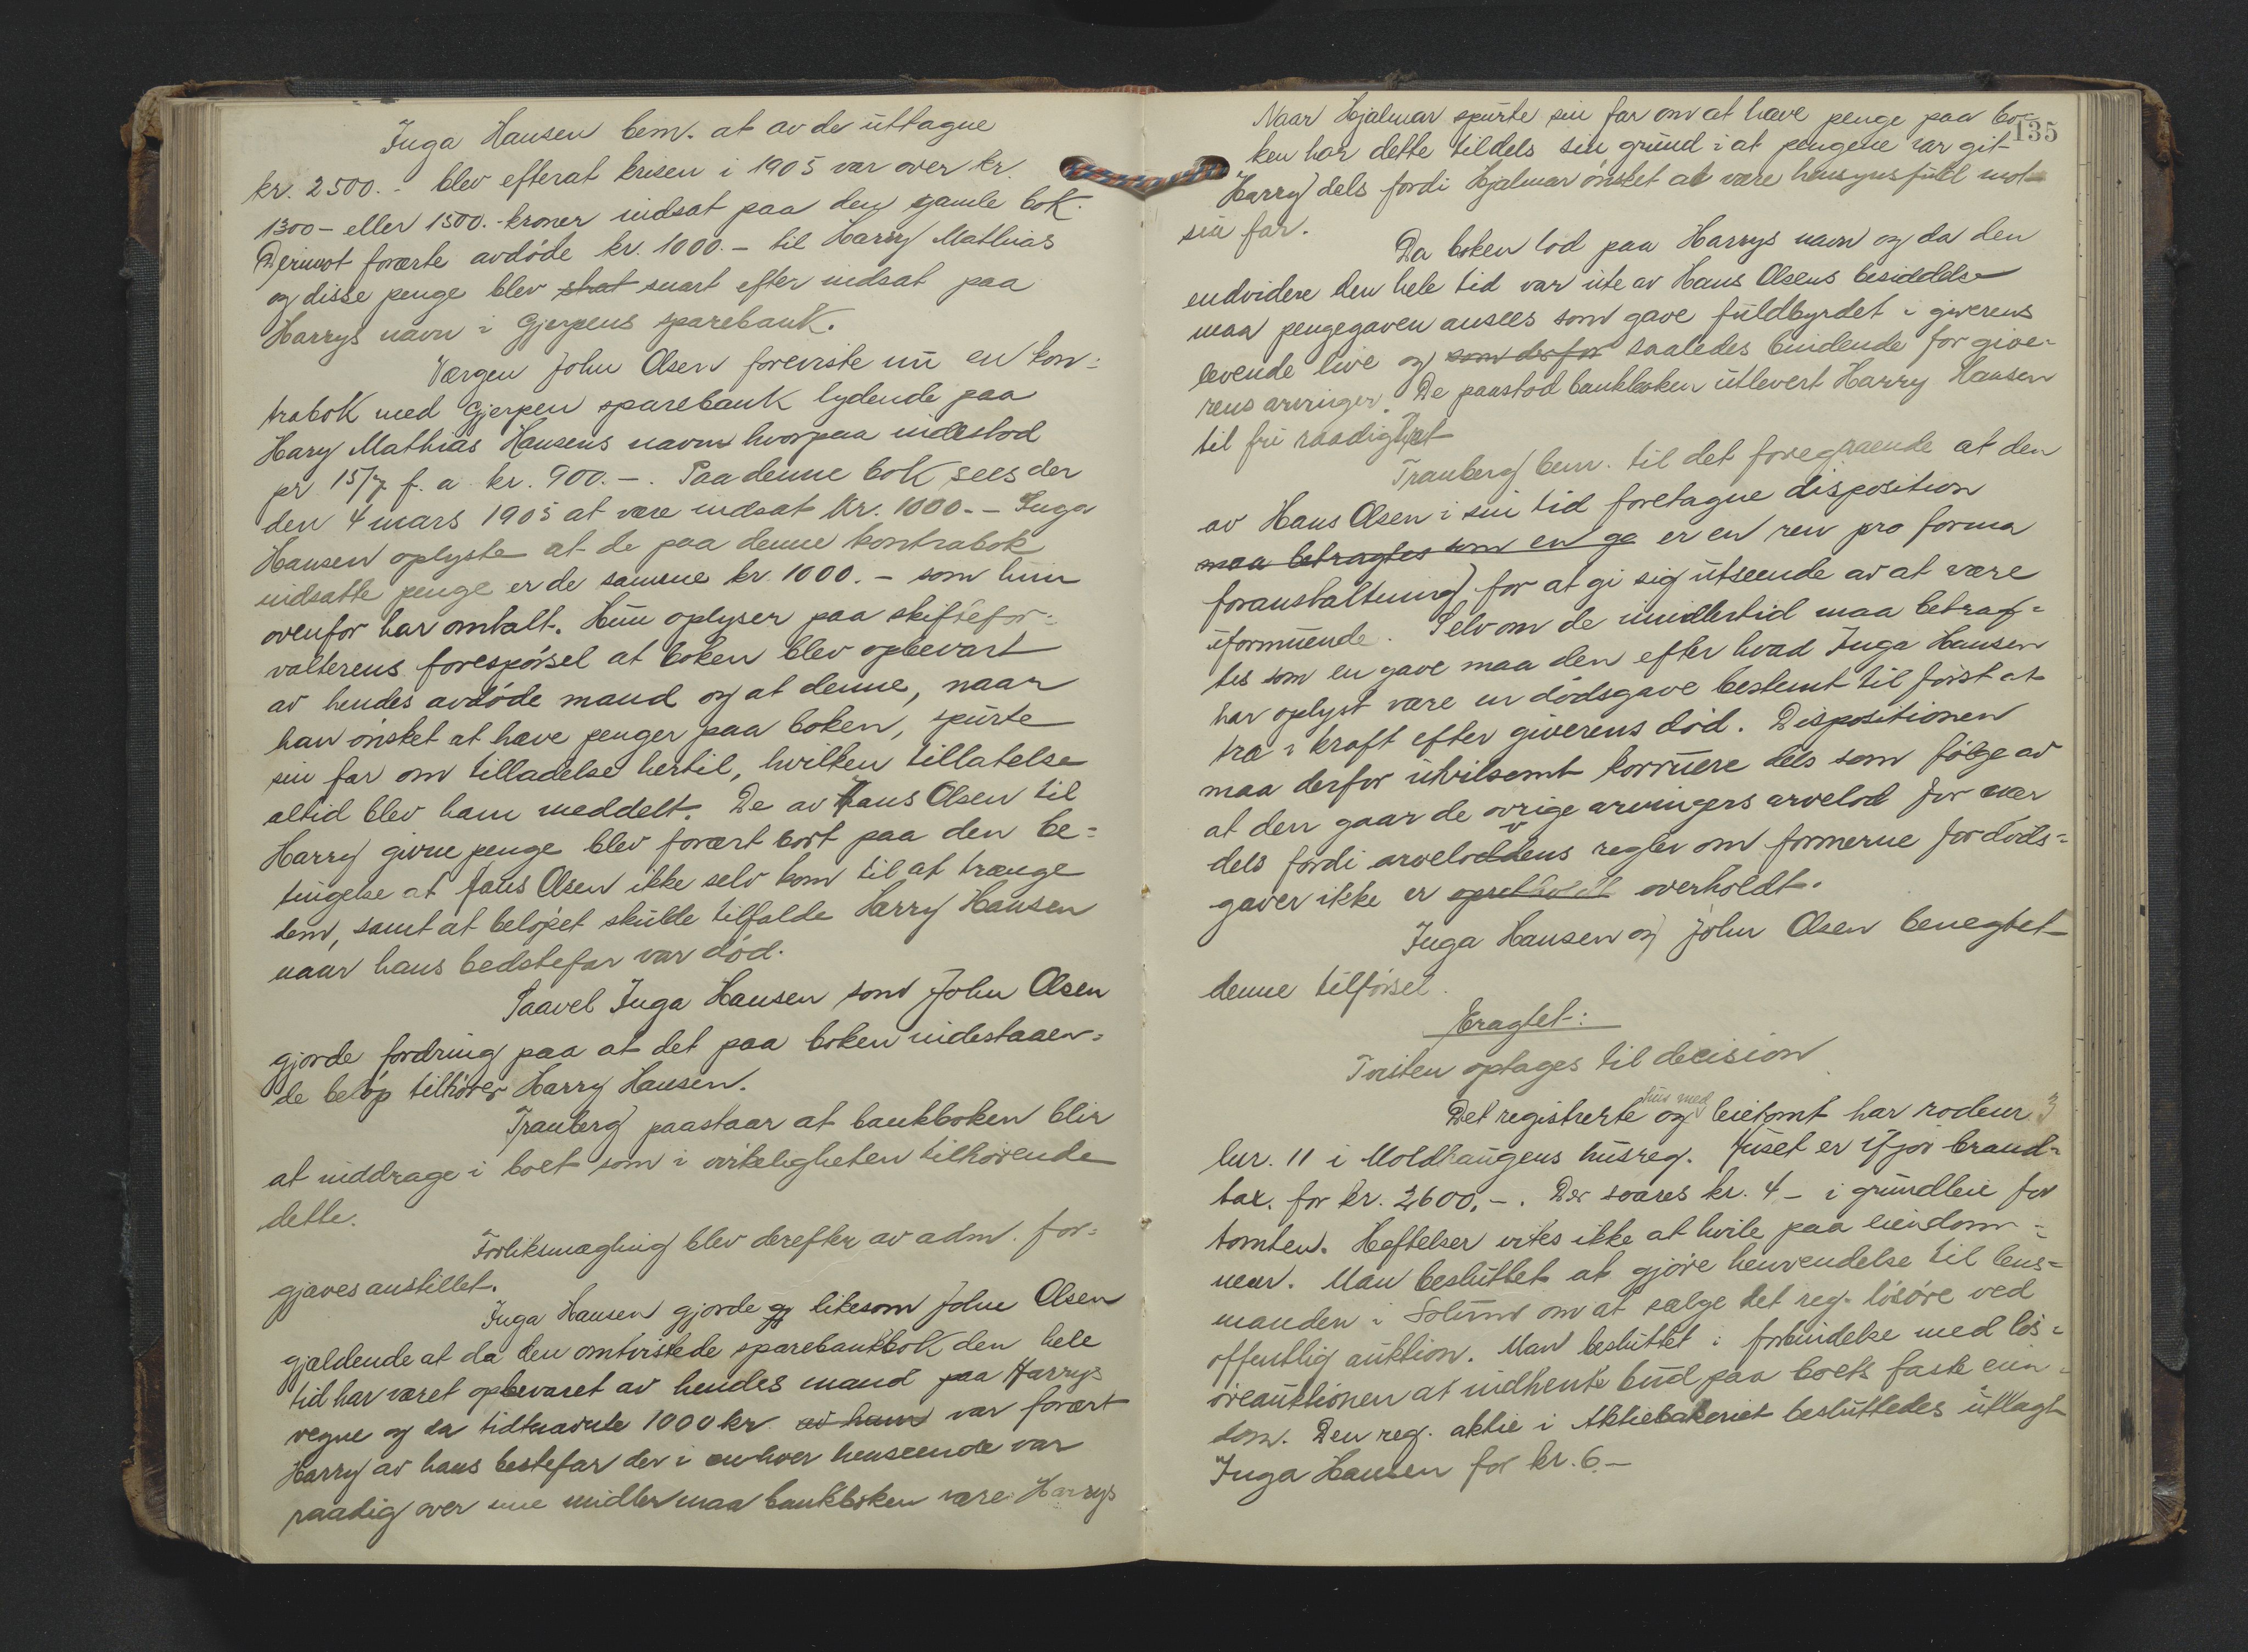 Inga Hansen bem. at av de uttagne
kr. 2500.- blev efterat krisen i 1905 var over kr.
1300- eller 1500.- kroner indsat paa den gamle bok.
Derimot forærte avdøde kr. 1000.- til Harry Mathias
og disse penge blev strat snart efter indsat paa
Harrys navn i Gjerpens sparebank.
Værgen John Olsen foreviste nu en kon=
trabok med Gjerpen sparebank lydende paa
Hary Mathias Hansens navn hvorpaa indestod
pr 15/7 f. a kr. 900.-. Paa denne bok sees der
den 4 mars 1905 at være indsat kr. 1000.- Inga
Hansen oplyste at de paa denne kontrabok
indsatte penge er de samme kr. 1000.- som hun
ovenfor har omtalt. Hun oplyser paa skiftefor=
valterens forespørsel at boken blev opbevart
av hendes avdøde mand og at denne, naar
han ønsket at hæve penger paa boken, spurte
sin far om tilladelse hertil, hvilken tillatelse
altid blev ham meddelt. De av Hans Olsen til
Harry givne penge blev foræret bort paa den be=
tingelse at Hans Olsen ikke selv kom til at trænge
dem, samt at beløpet skulde tilfalde Harry Hansen
naar hans bedstefar var død.
Saavel Inga Hansen som John Olsen
gjorde fordring paa at det paa boken indestaaen=
de beløp tilhører Harry Hansen.
Tranberg paastaar at bankboken blir
at inddrage i boet som i virkeligheten tilhørende
dette.
Forliksmægling blev derefter av adm. for=
gjæves anstillet.
Inga Hansen gjorde gj likesom John Olsen
gjældende at da den omtvistede sparebankbok den hele
tid har været opbevaret av hendes mand paa Harrys
vegne og da tidtnævnte 1000 kr av ham var foræt
Harry av hans bestefar der i enhver henseende var
raadig over sine midler maa bankboken være Harrys
135
Naar Hjalmar spurte sin far om at hæve penge paa bo=
ken har dette tildels sin grund i at pengene var git
Harry dels fordi Hjalmar ønsket at være hensynsfuld mot
sin far.
Da boken lød paa Harrys navn og da den
endvidere den hele tid var ute av Hans Olsens besiddelse
maa pengegaven ansees som gave fuldbyrdet i giverens
levende live og som derfor saaledes bindende for give=
rens arvinger. De paastod bankboken utlevert Harry Hansen
til fri raadighet
Tranberg bem. til det foregaaende at den
av Hans Olsen i sin tid foretagne disposition
maa betragtes som en ga er en ren pro forma
foranstaltning for at gi sig utseende av at være
uformuende. Selv om de imidlertid maa betrag=
tes som en gave maa den efter hvad Inga Hansen
har oplyst være en dødsgave bestemt til først at
træ i kraft efter giverens død. Dispositionen
maa derfor utvilsomt korruere dels som følge av
at den gaar de øvrige arvingers arvelod for nær
dels fordi arvelovens regler om formerne for døds=
gaver ikke er opretholdt overholdt.
Inga Hansen og John Olsen benegtet
denne tilførsel.
Eragtet:
Tvisten optages til decision
Det registrerte hus med og leietomt har rodenr 3
lnr. 11 i Moldhaugens husreg. Huset er ifjor brand=
tax. for kr. 2600.-. Der svares kr. 4- i grundleie for
tomten. Heftelser vites ikke at hvile paa eiendom=
men. Man besluttet at gjøre henvendelse til lens=
manden i Solum om at sælge det reg. løsøre ved
offentlig auktion. Man besluttet i forbindelse med løs=
øreauktionen at indhente bud paa boets faste eien=
dom. Den reg. aktie i Aktiebakeriet besluttedes utlagt
Inga Hansen for kr. 6.-